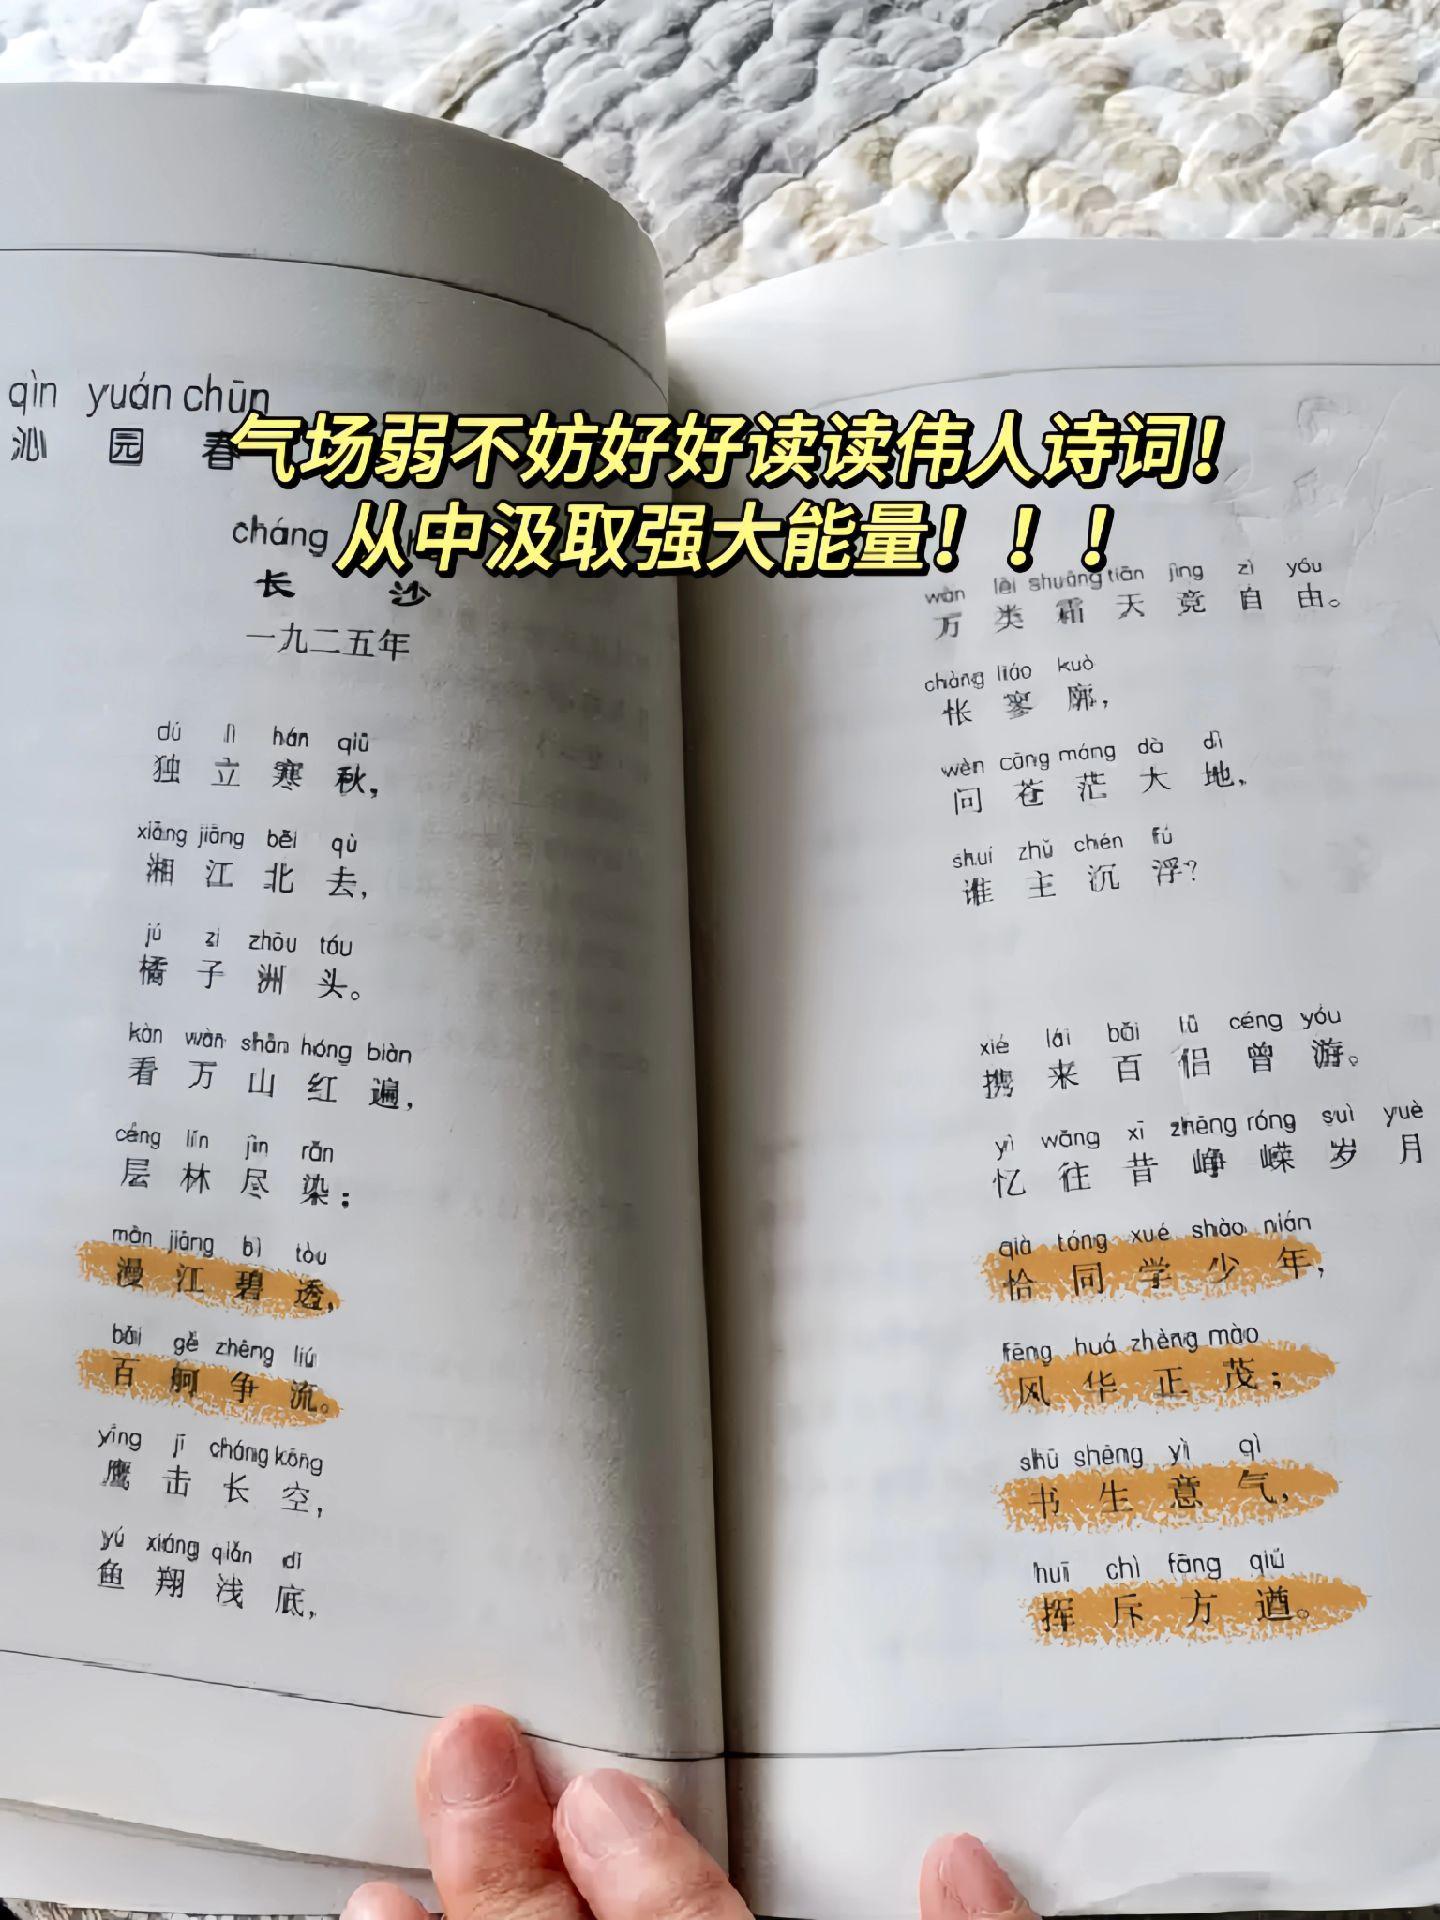 气场弱不妨好好读读伟人诗词！
从中汲取强大能量！！！
qìn yuán chūn
沁园春
cháng
长沙
一九二五年
dú lì hán qiū
独立寒秋，
xiāng jiāng běi qù
湘江北去，
jú zi zhōu tóu
橘子洲头。
kàn wàn shān hóng biàn
看万山红遍，
céng lín jìn rǎn
层林尽染；
màn jiāng bì tòu
漫江碧透，
bǎi gě zhēng liú
百舸争流。
yīng jī cháng kōng
鹰击长空，
yú xiáng qiǎn dǐ
鱼翔浅底，
wàn lèi shuāng tiān jìng zì yóu
万类霜天竞自由。
chàng liáo kuò
怅寥廓，
wèn cāng máng dà dì
问苍茫大地，
shuí zhǔ chén fú
谁主沉浮？
xié lái bǎi lǚ céng yóu
携来百侣曾游。
yì wǎng xī zhēng róng suì yuè
忆往昔峥嵘岁月
qià tóng xué shào nián
恰同学少年，
fēng huá zhèng mào
风华正茂；
shū shēng yì qì
书生意气，
huī chì fāng qiú
挥斥方遒。